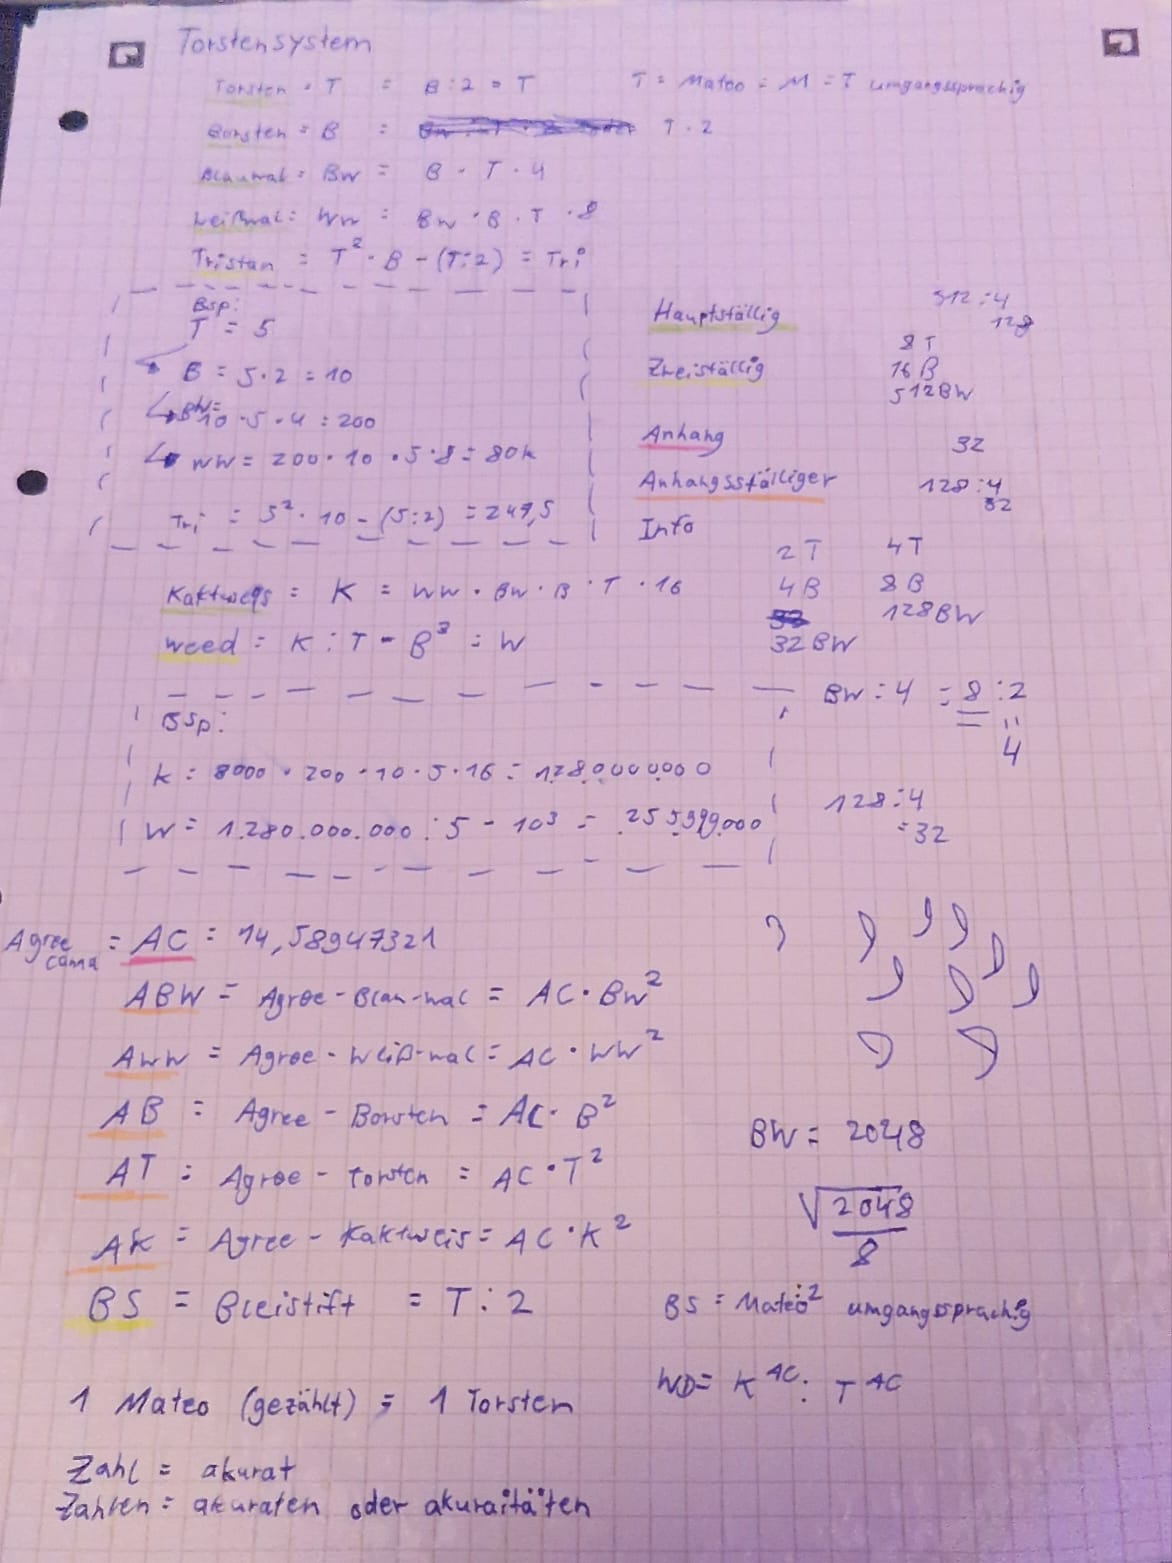 Torstensystem
Torsten = T = B:2 = T
T = Mateo = M = T umgangssprachig
Borsten = B = T · 2
Blauwal = BW = B · T · 4
Weißwal = WW = BW · B · T · 8
Tristan = T² · B - (T:2) = Tri
Bsp:
T = 5
B = 5·2 = 10
BW=
10 · 5 · 4 = 200
WW = 200 · 10 · 5 · 8 = 80k
Tri = 5² · 10 - (5:2) = 247,5
Hauptställig
512:4
128
Zweiställig
8T
16B
512BW
Anhang
32
Anhangsställiger
128:4
32
Info
2T 4T
4B 8B
128BW
32BW
Kaktweis = K = WW · BW · B · T · 16
weed = K : T - B³ = W
BW : 4 = 8 : 2
=
4
Bsp:
K = 8000 · 200 · 10 · 5 · 16 = 128.000.0000
W = 1.280.000.000 : 5 - 10³ = 255.999.000
128:4
=32
Agree canna = AC = 14,58947321
ABW = Agree-Blau-wal = AC · BW²
AWW = Agree-Weiß-wal = AC · WW²
AB = Agree - Borsten = AC · B²
AT = Agree - Torsten = AC · T²
AK = Agree - Kaktweis = AC · K²
BS = Bleistift = T : 2
BW = 2048
√2048
8
BS = Mateo:2 umgangssprachig
WD = K^AC : T^AC
1 Mateo (gezählt) = 1 Torsten
Zahl = akurat
Zahlen = akuraten oder akuraitäten